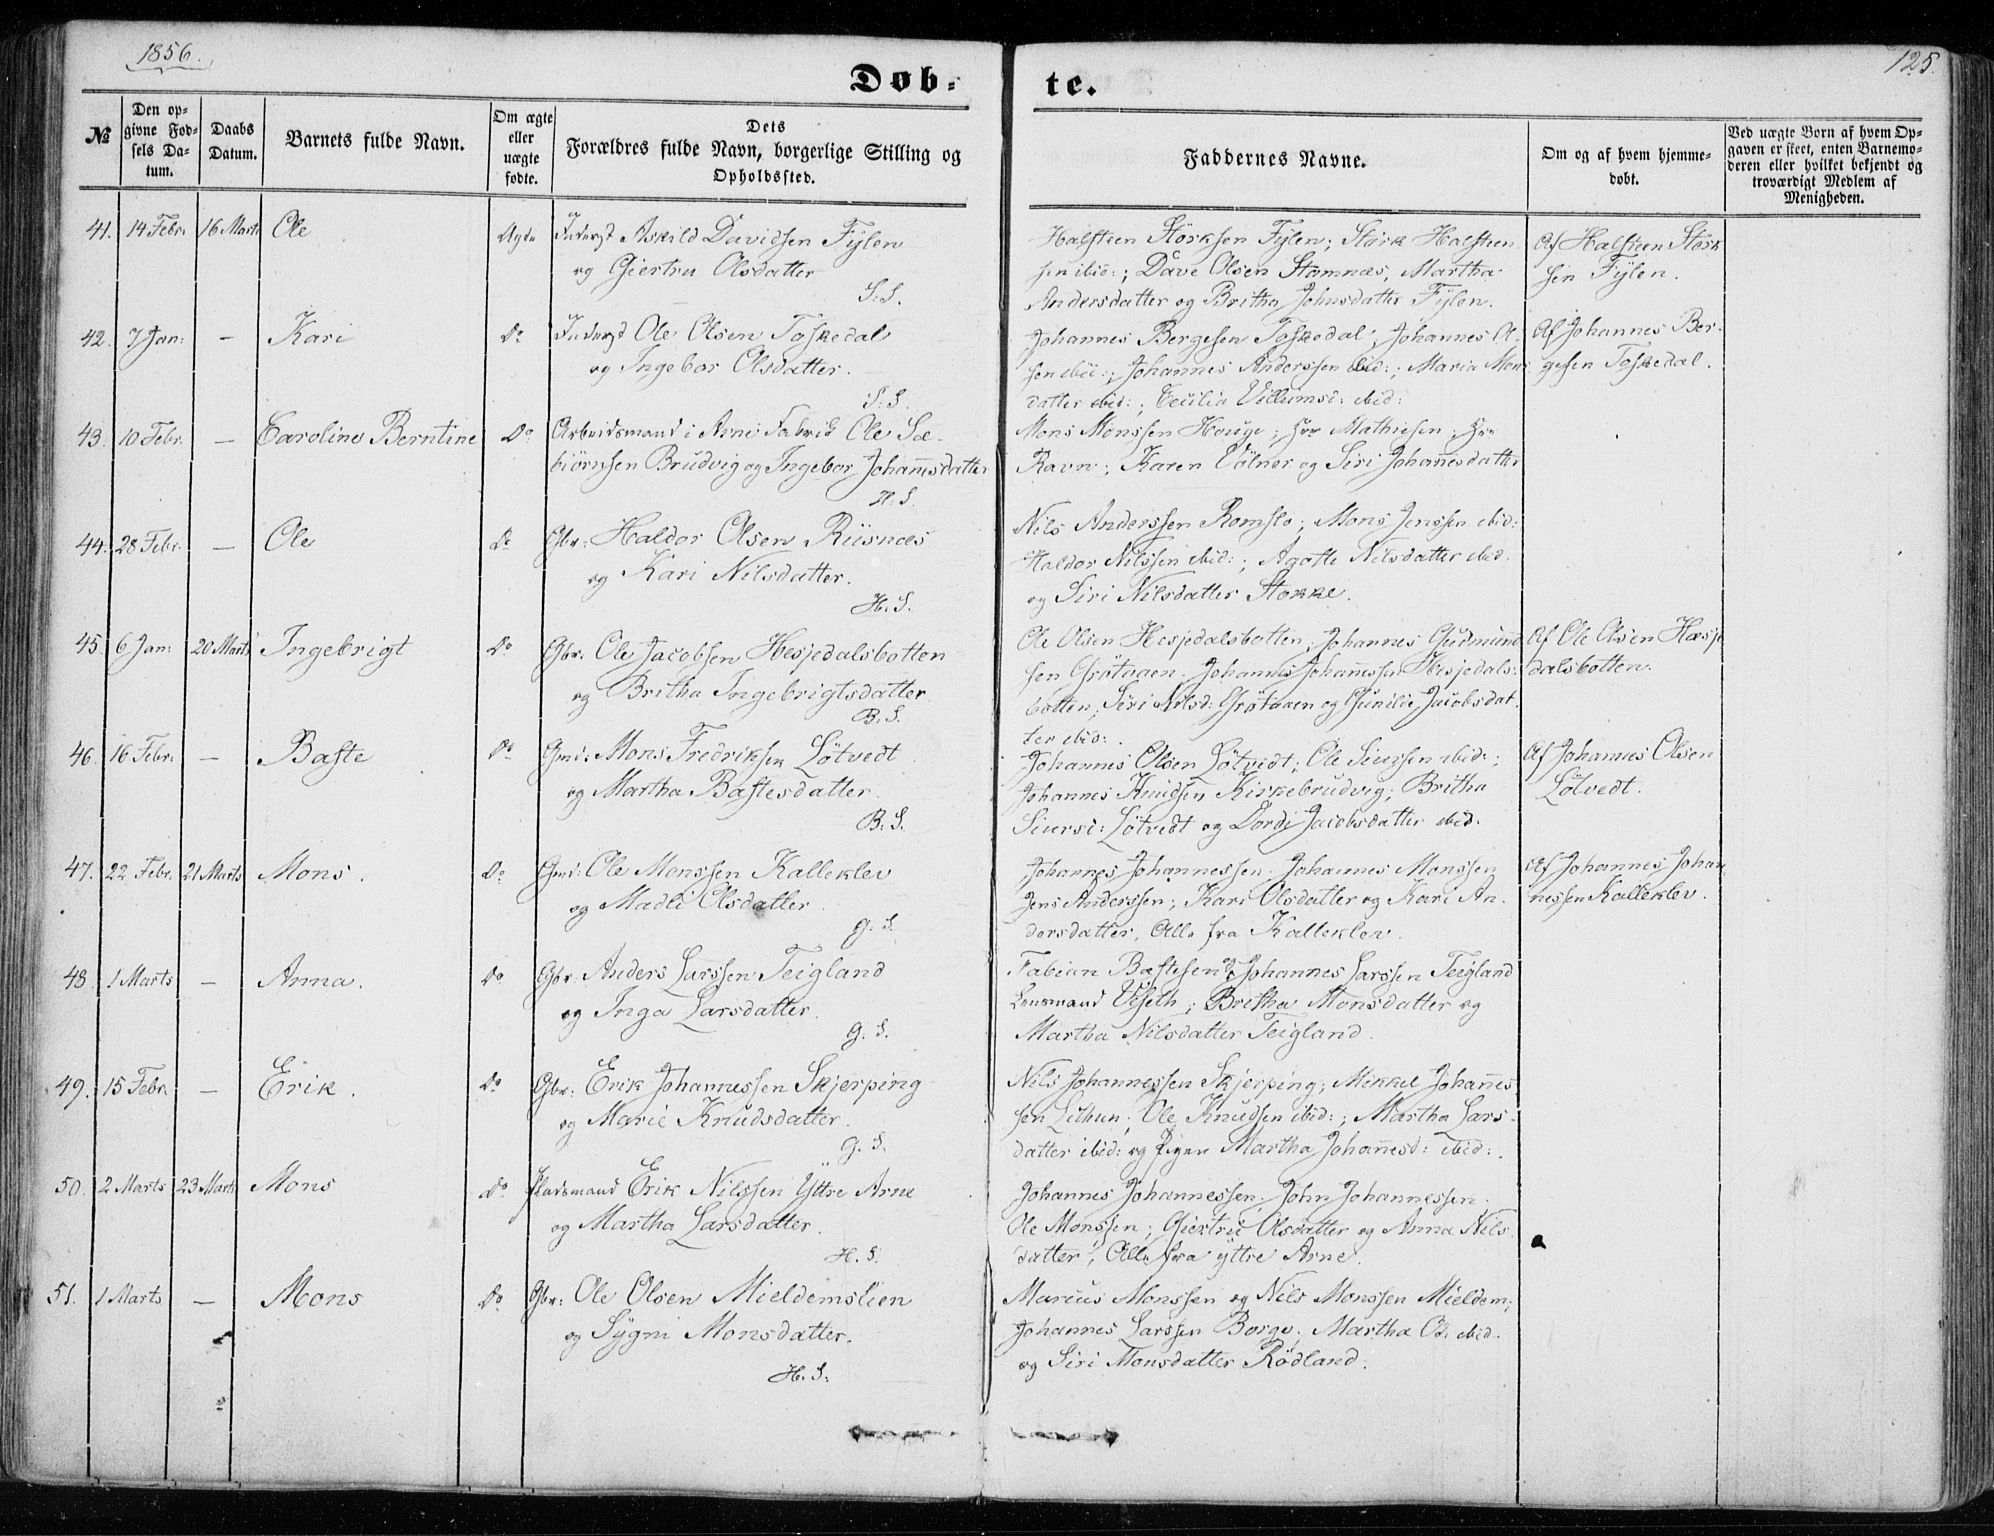 1856.
125.
Døb-
te.
№
Den op-
givne Fød-
sels Da-
tum.
Daabs
Datum.
Barnets fulde Navn.
Om ægte
eller
uægte
fødte.
Dets
Forældres fulde Navn, borgerlige Stilling og
Opholdssted.
Faddernes Navne.
Om og af hvem hjemme-
døbt.
Ved uægte Børn af hvem Op-
gaven er skeet, enten Barnemo-
deren eller hvilket bekjendt og
troværdigt Medlem af
Menigheden.
41. 14 Febr. 16 Marts Ole Ægte Inderst Askild Davidsen Fylen
og Giertru Olsdatter
S: S.
Halsteen Størksen Fylen; Størk Halsteen
sen ibid:; Dave Olsen Stamnæs, Martha
Andersdatter og Britha Johnsdatter Fylen.
Af Halsteen Størk
sen Fylen.
42. 7 Jan: — Kari Do Inderst Ole Olsen Toskedal
og Ingebor Olsdatter.
S: S.
Johannes Bergesen Toskedal; Johannes Ol-
sen ibid:; Johannes Anderssen ibid:; Maria Mons
datter ibid:; Cecilia Villumsd: ibid:
Af Johannes Ber-
gesen Toskedal.
43. 10 Febr. — Caroline Berntine Do Arbeidsmand i Arne Fabrik Ole Sæ-
biørnsen Brudvig og Ingebor Johannesdatter
H: S.
Mons Monssen Houge; Hrr Mathiesen; Hrr
Ravn; Karen Völner og Siri Johannesdatter
44. 28 Febr. — Ole Do Gbr: Haldor Olsen Riisnæs
og Kari Nilsdatter.
H. S.
Nils Anderssen Romslo; Mons Jenssen ibid:
Haldor Nilssen ibid:; Agathe Nilsdatter ibid.
og Siri Nilsdatter Stokke.
45. 6 Jan: 20 Marts Ingebrigt Do Gbr. Ole Jacobsen Hesjedalsbotten
og Britha Ingebrigtsdatter
B: S.
Ole Olsen Hesjedalsbotten; Johannes Gudmund
sen Grøtaaen; Johannes Johannessen Hesjedals-
botten; Siri Nilsd: Grøtaaen og Gunilie Jacobsdat
ter ibid:.
Af Ole Olsen Hæsje
dalsbotten.
46. 16 Febr: — Baste Do Gmd: Mons Fredriksen Løtvedt
og Martha Bastesdatter.
B: S.
Johannes Olsen Løtvedt; Ole Siursen ibid:;
Johannes Knudsen Kirkebrudvig; Britha
Siursd: Løtvedt og Dordi Jacobsdatter ibid:
Af Johannes Olsen
Løtvedt.
47. 22 Febr. 21 Marts Mons. Do Gmd: Ole Monssen Kalleklev
og Madli Olsdatter.
G. S.
Johannes Johannessen; Johannes Monssen
Jens Anderssen; Kari Olsdatter og Kari An-
dersdatter, Alle fra Kalleklev.
Af Johannes Johan
nessen Kalleklev.
48. 1 Marts — Anna. Do Gbr. Anders Larssen Teigland
og Inga Larsdatter.
G. S.
Fabian Bastesen & Johannes Larssen Teigland
Lensmand Veseth; Britha Monsdatter og
Martha Nilsdatter Teigland.
49. 15 Febr. — Erik. Do Gbr: Erik Johannessen Skjerping
og Marie Knudsdatter.
G. S.
Nils Johannessen Skjerping; Mikkel Johannes
sen Lithun; Ole Knudsen ibid:; Martha Lars-
datter ibid: og Pigen Martha Johannesd: ibid:.
50. 2 Marts 23 Marts Mons do Pladsmand Erik Nilssen Yttre Arne
og Martha Larsdatter.
H. S.
Johannes Johannessen; John Johannessen.
Ole Monssen; Giertrue Olsdatter og Anna Nils-
datter, Alle fra yttre Arne.
51. 1 Marts — Mons Do Gbr: Ole Olsen Mieldemslien
og Sygni Monsdatter.
H. S:
Marcus Monssen og Nils Monssen Mieldem;
Johannes Larssen Borge; Martha Od. ibid.
og Siri Monsdatter Rödland.